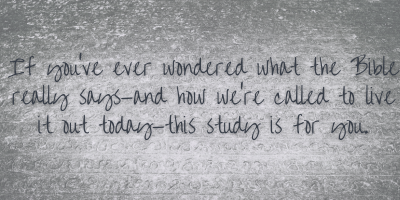 If you've ever wondered what the Bible
really says—and how we're called to live
it out today—this study is for you.